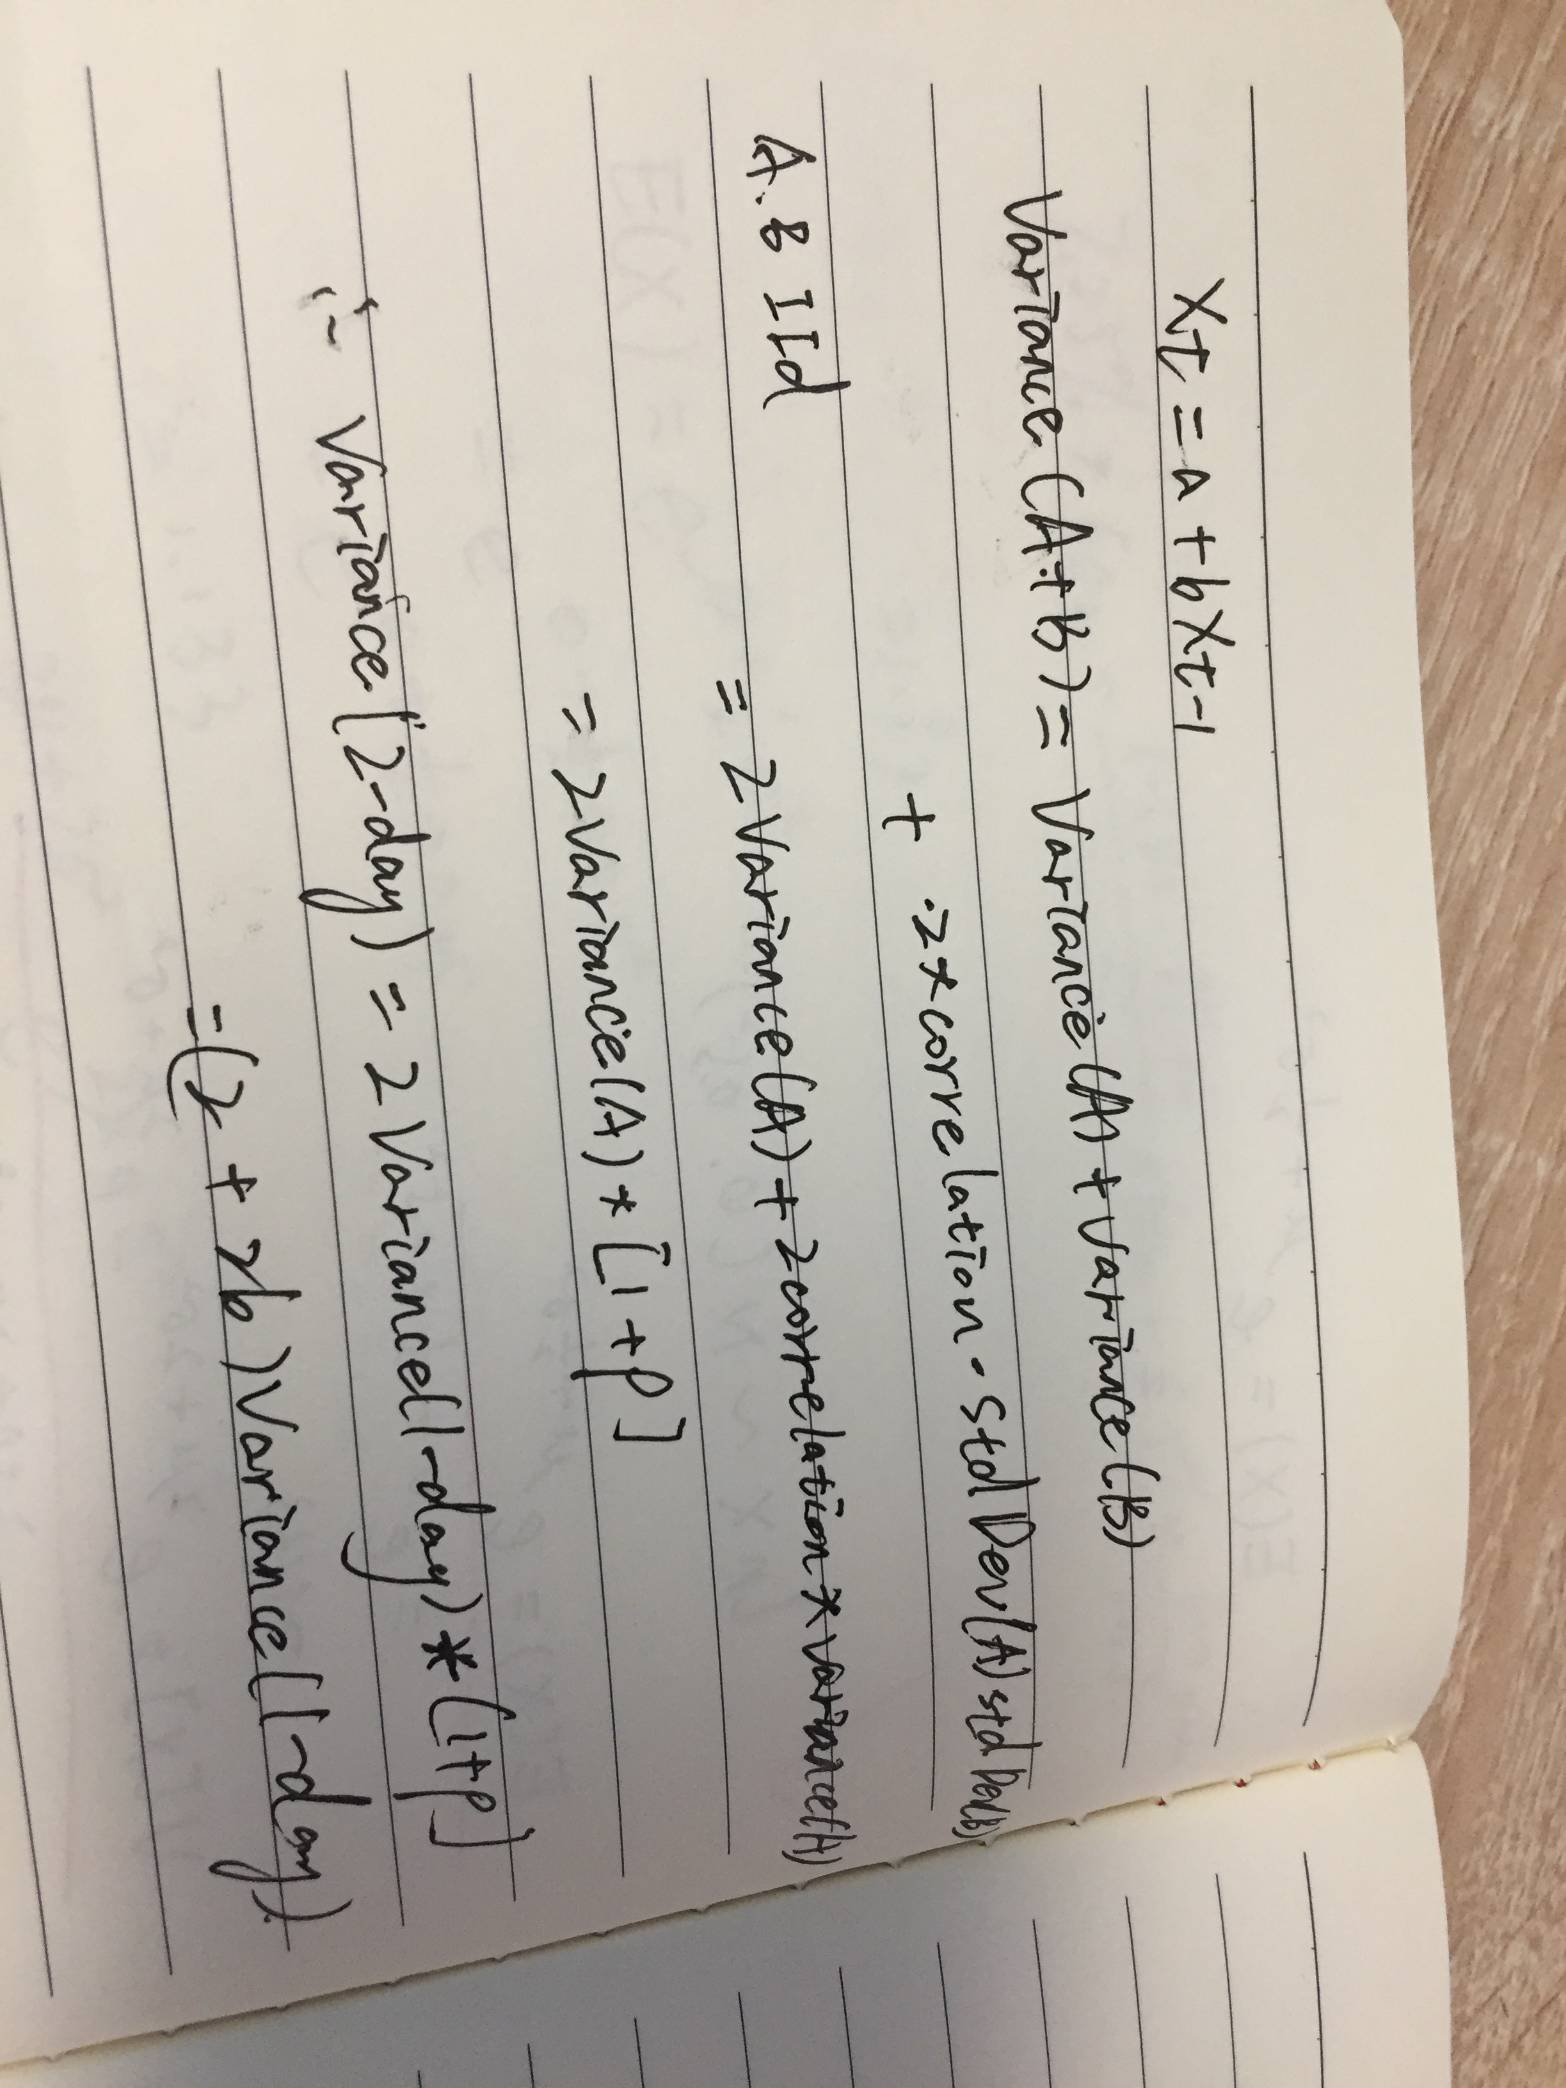 Xt = a + bXt-1
Variance (A+B) = Variance (A) + Variance (B)
+ 2*correlation·stdDev(A)stdDev(B)
A.B IId = 2Variance(A) + 2correlation*variance(A)
= 2Variance(A)*[1+ρ]
∴ Variance(2-day) = 2Variance(1-day)*[1+ρ]
= (2+2b)Variance(1-day).